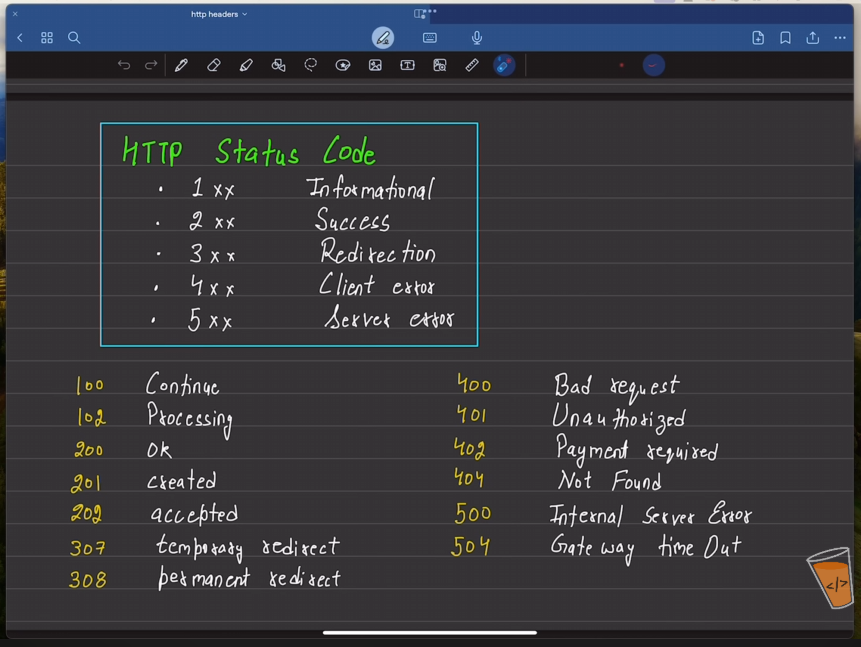 http headers
HTTP Status Code
• 1xx Informational
• 2xx Success
• 3xx Redirection
• 4xx Client error
• 5xx Server error
100 Continue
102 Processing
200 OK
201 created
202 accepted
307 temporary redirect
308 permanent redirect
400 Bad request
401 Unauthorized
402 Payment required
404 Not Found
500 Internal Server Error
504 Gateway time Out
</>